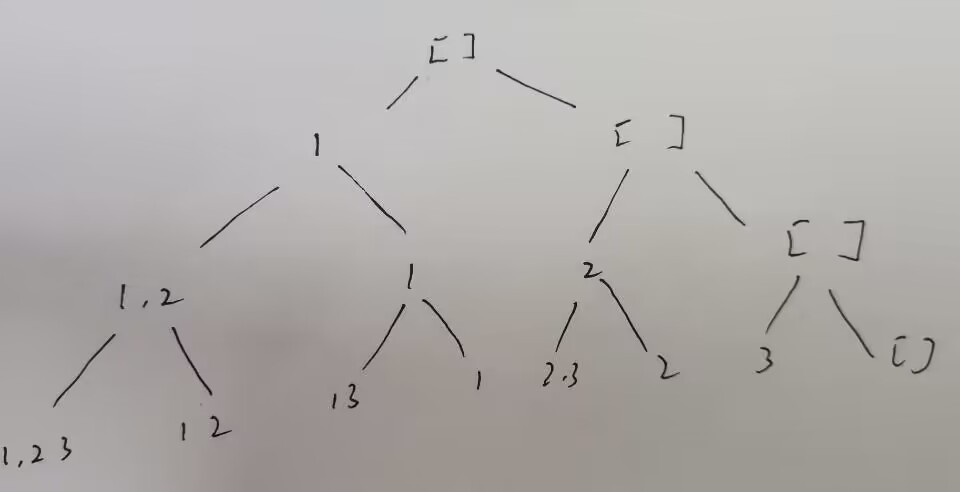 [ ]
1 [ ]
1,2 1 2 [ ]
1,2 3 1 2 1 3 1 2.3 2 3 [ ]